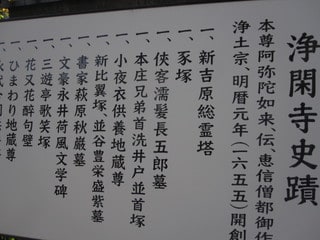 浄閑寺史蹟
本尊阿弥陀如来、伝、恵信僧都御作
浄土宗、明暦元年(一六五五)開創
一、新吉原総霊塔
一、豕塚
一、侠客濡髪長五郎墓
一、本庄兄弟首洗井戸並首塚
一、小夜衣供養地蔵尊
一、新比翼塚、並谷豊栄盛紫墓
一、書家萩原秋巌墓
一、文豪永井荷風文学碑
一、三遊亭歌笑塚
一、花又花酔句壁
一、ひまわり地蔵尊